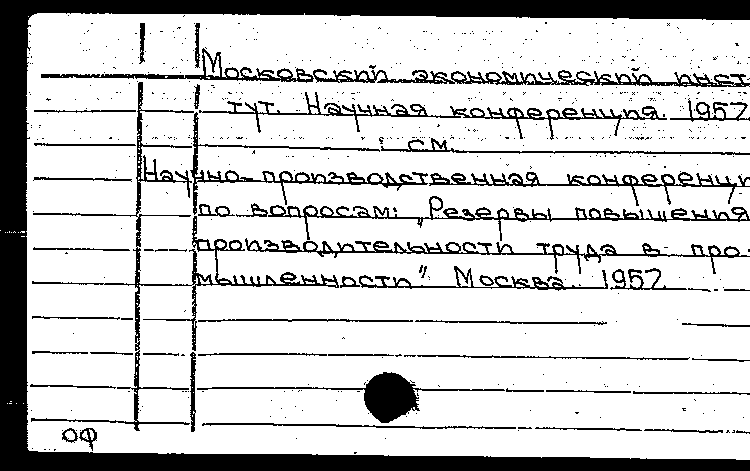 Московский экономический инст-
тут. Научная конференция. 1957.
: см.
Научно-производственная конференци
по вопросам: „Резервы повышения
производительности труда в про-
мышленности" Москва. 1957.
ОФ